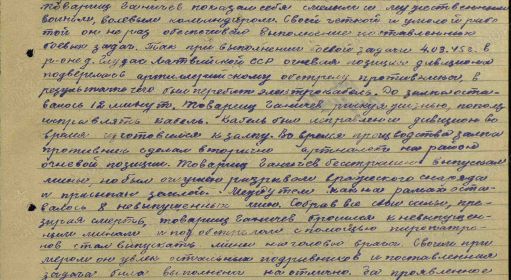 Товарищ Ганичев показал себя смелым и мужественным
воином, волевым командиром. Своей четкой и умелой рабо
той он не раз обеспечивал выполнение поставленных
боевых задач. Так при выполнении боевой задачи 4.03.45г. в
р-оне д. Слудас Латвийской ССР огневая позиция дивизиона
подверглась артиллерийскому обстрелу противника, в
результате чего был перебит электрокабель. До залпа оста-
валось 12 минут. Товарищ Ганичев рискуя жизнью, пополз
исправлять кабель. Кабель был исправлен и дивизион во
время изготовился к залпу. Во время производства залпа
противник сделал вторично артналет на район
огневой позиции. Товарищ Ганичев бесстрашно выпускал
мины, но был оглушен разрывом вражеского снаряда
и присыпан землей. Между тем как на рамах оста-
валось 8 невыпущенных мин. Собрав все свои силы, пре-
зирая смерть, товарищ Ганичев бросился к невыпущен-
ным минам и под обстрелом с помощью пиропатро-
нов стал выпускать мины на голову врага. Своим при
мером он увлек остальных подрывников и поставленная
задача была выполнена на отлично. За проявленное